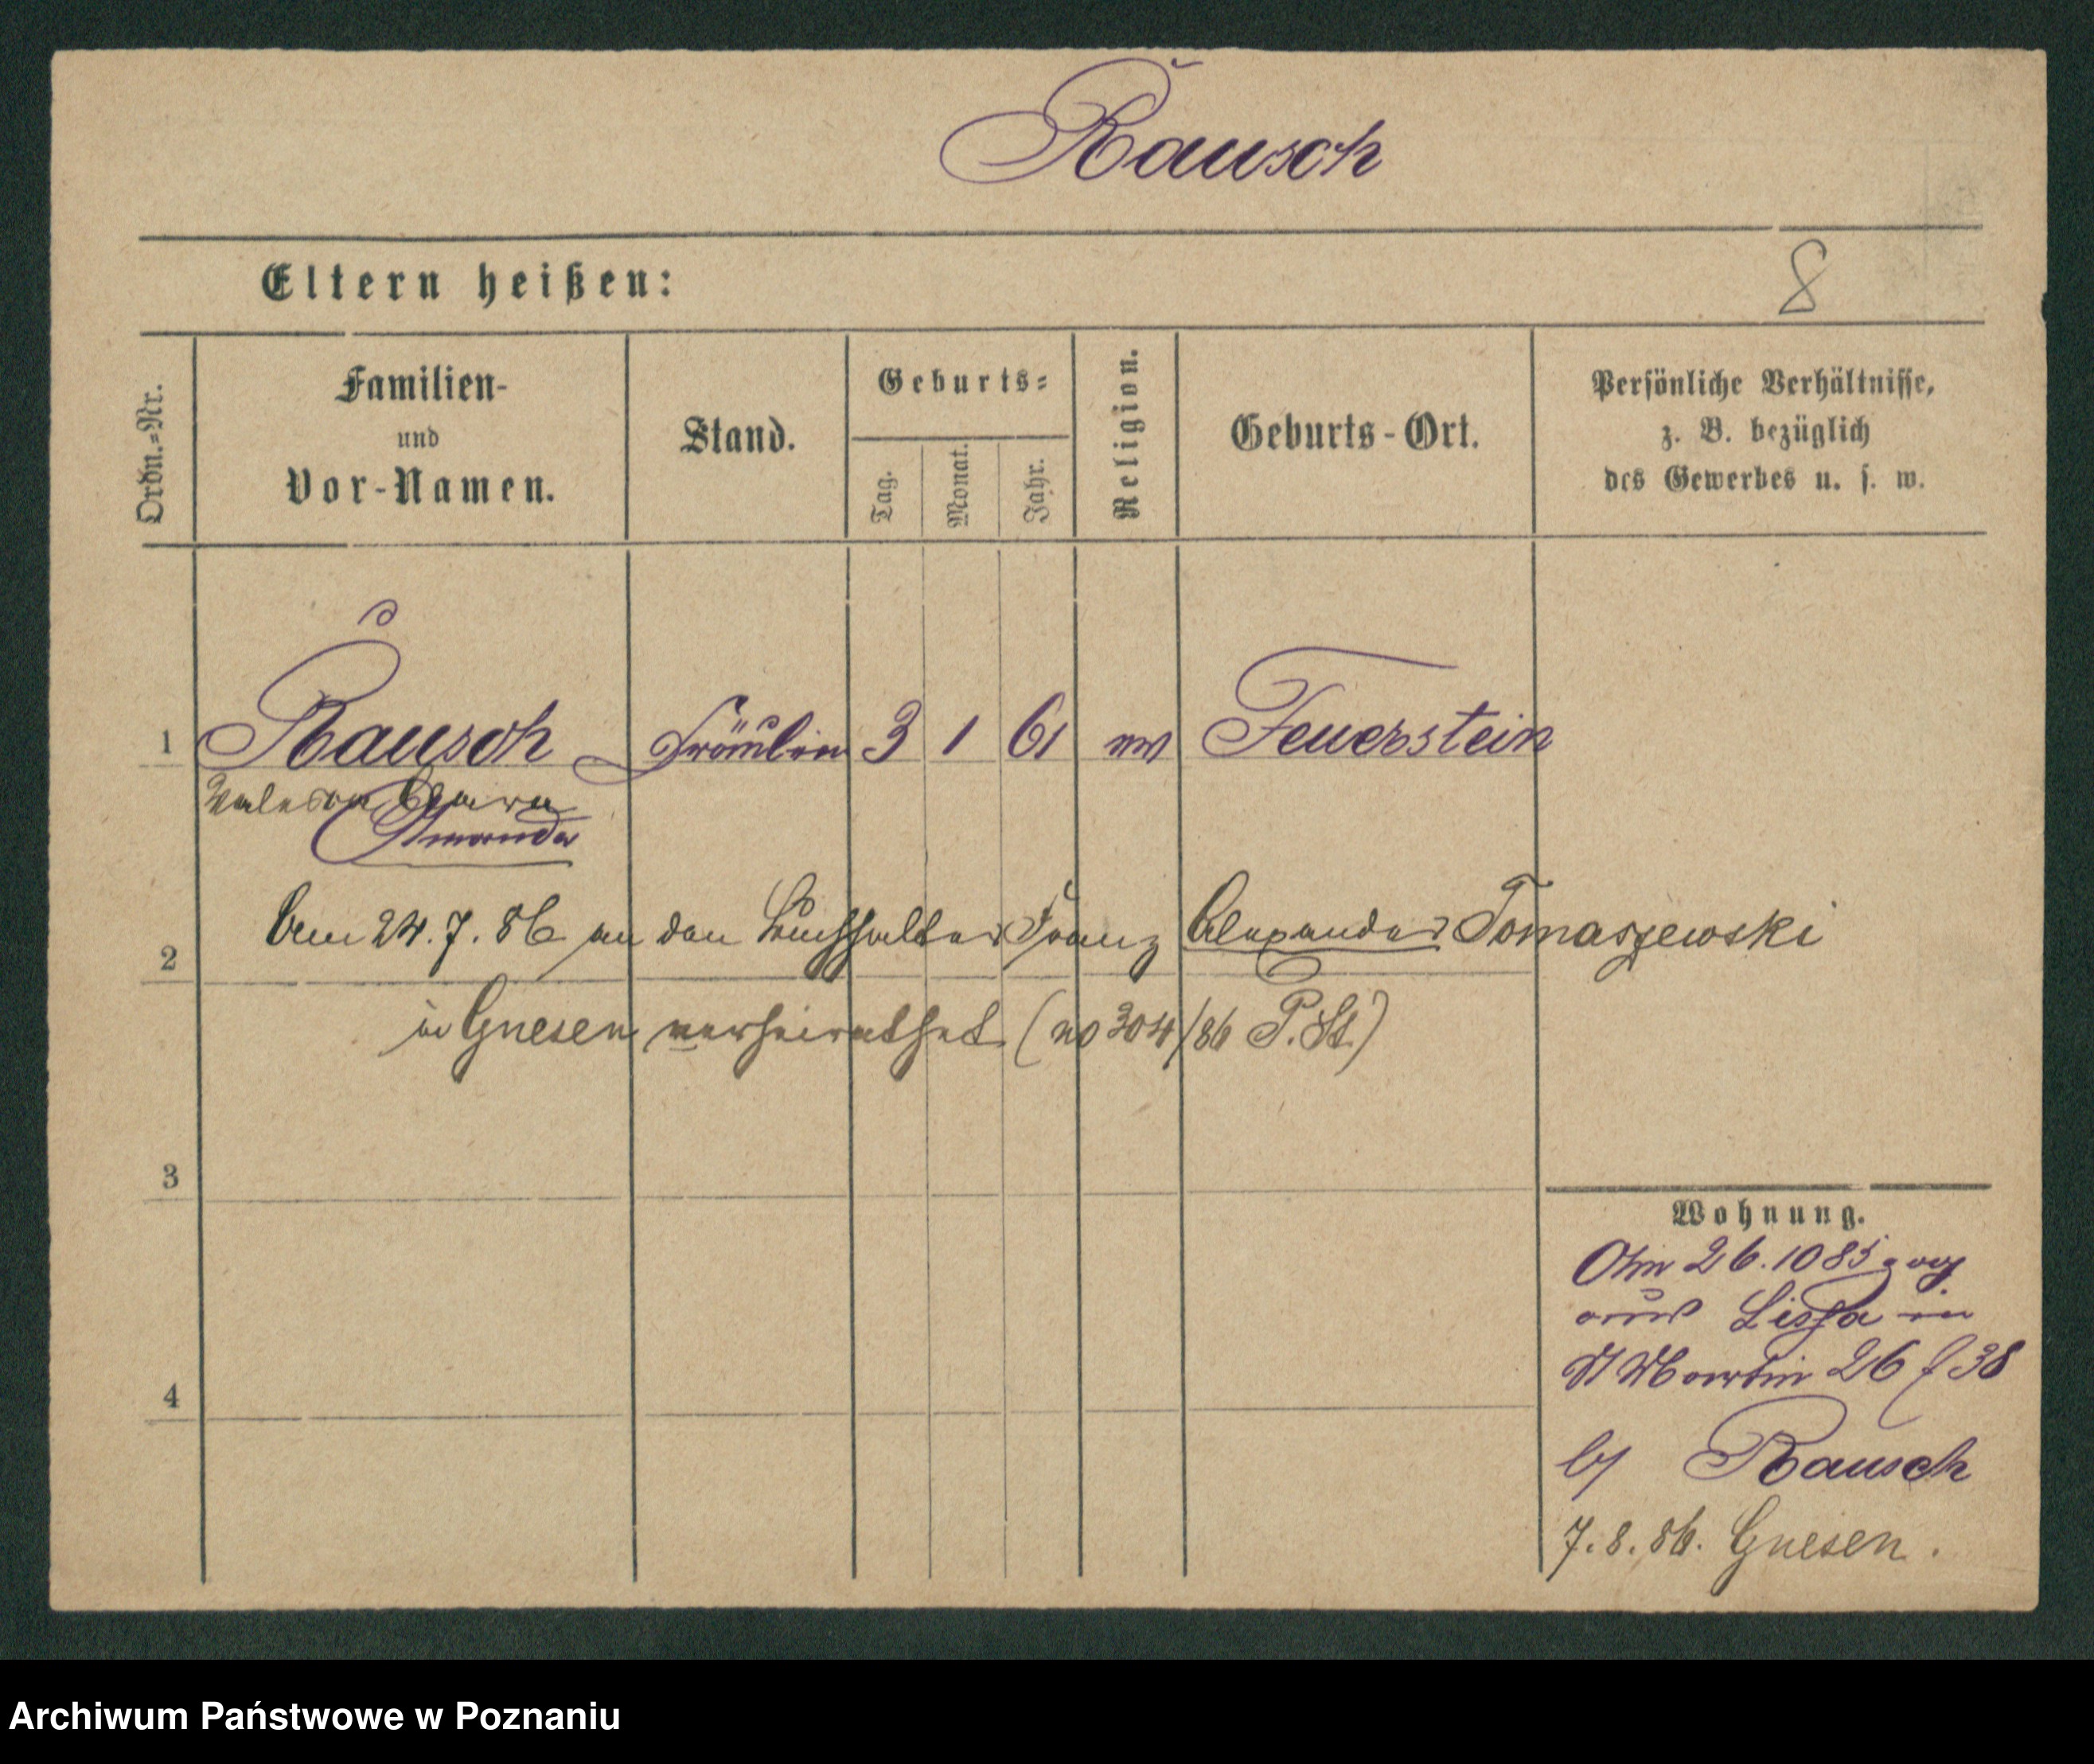 Rausch
Eltern heißen:
8
Ordn.=Nr.
Familien-
und
Vor-Namen.
Stand.
Geburts=
Tag.
Monat.
Jahr.
Religion.
Geburts-Ort.
Persönliche Verhältnisse,
z. B. bezüglich
des Gewerbes u. s. w.
1 Rausch Fräulein 3 1 61 ev Feuerstein
Valeska Clara
Amanda
2
Am 24.7.86 an den Buchhalter Franz Alexander Tomaszewski
in Gnesen verheirathet (no 304/86 P.St.)
3
4
Wohnung.
Am 26.10 85 zog
aus Lissa in
St Martin 26 f 38
b/ Rausch
7.8.86. Gnesen.
Archiwum Państwowe w Poznaniu